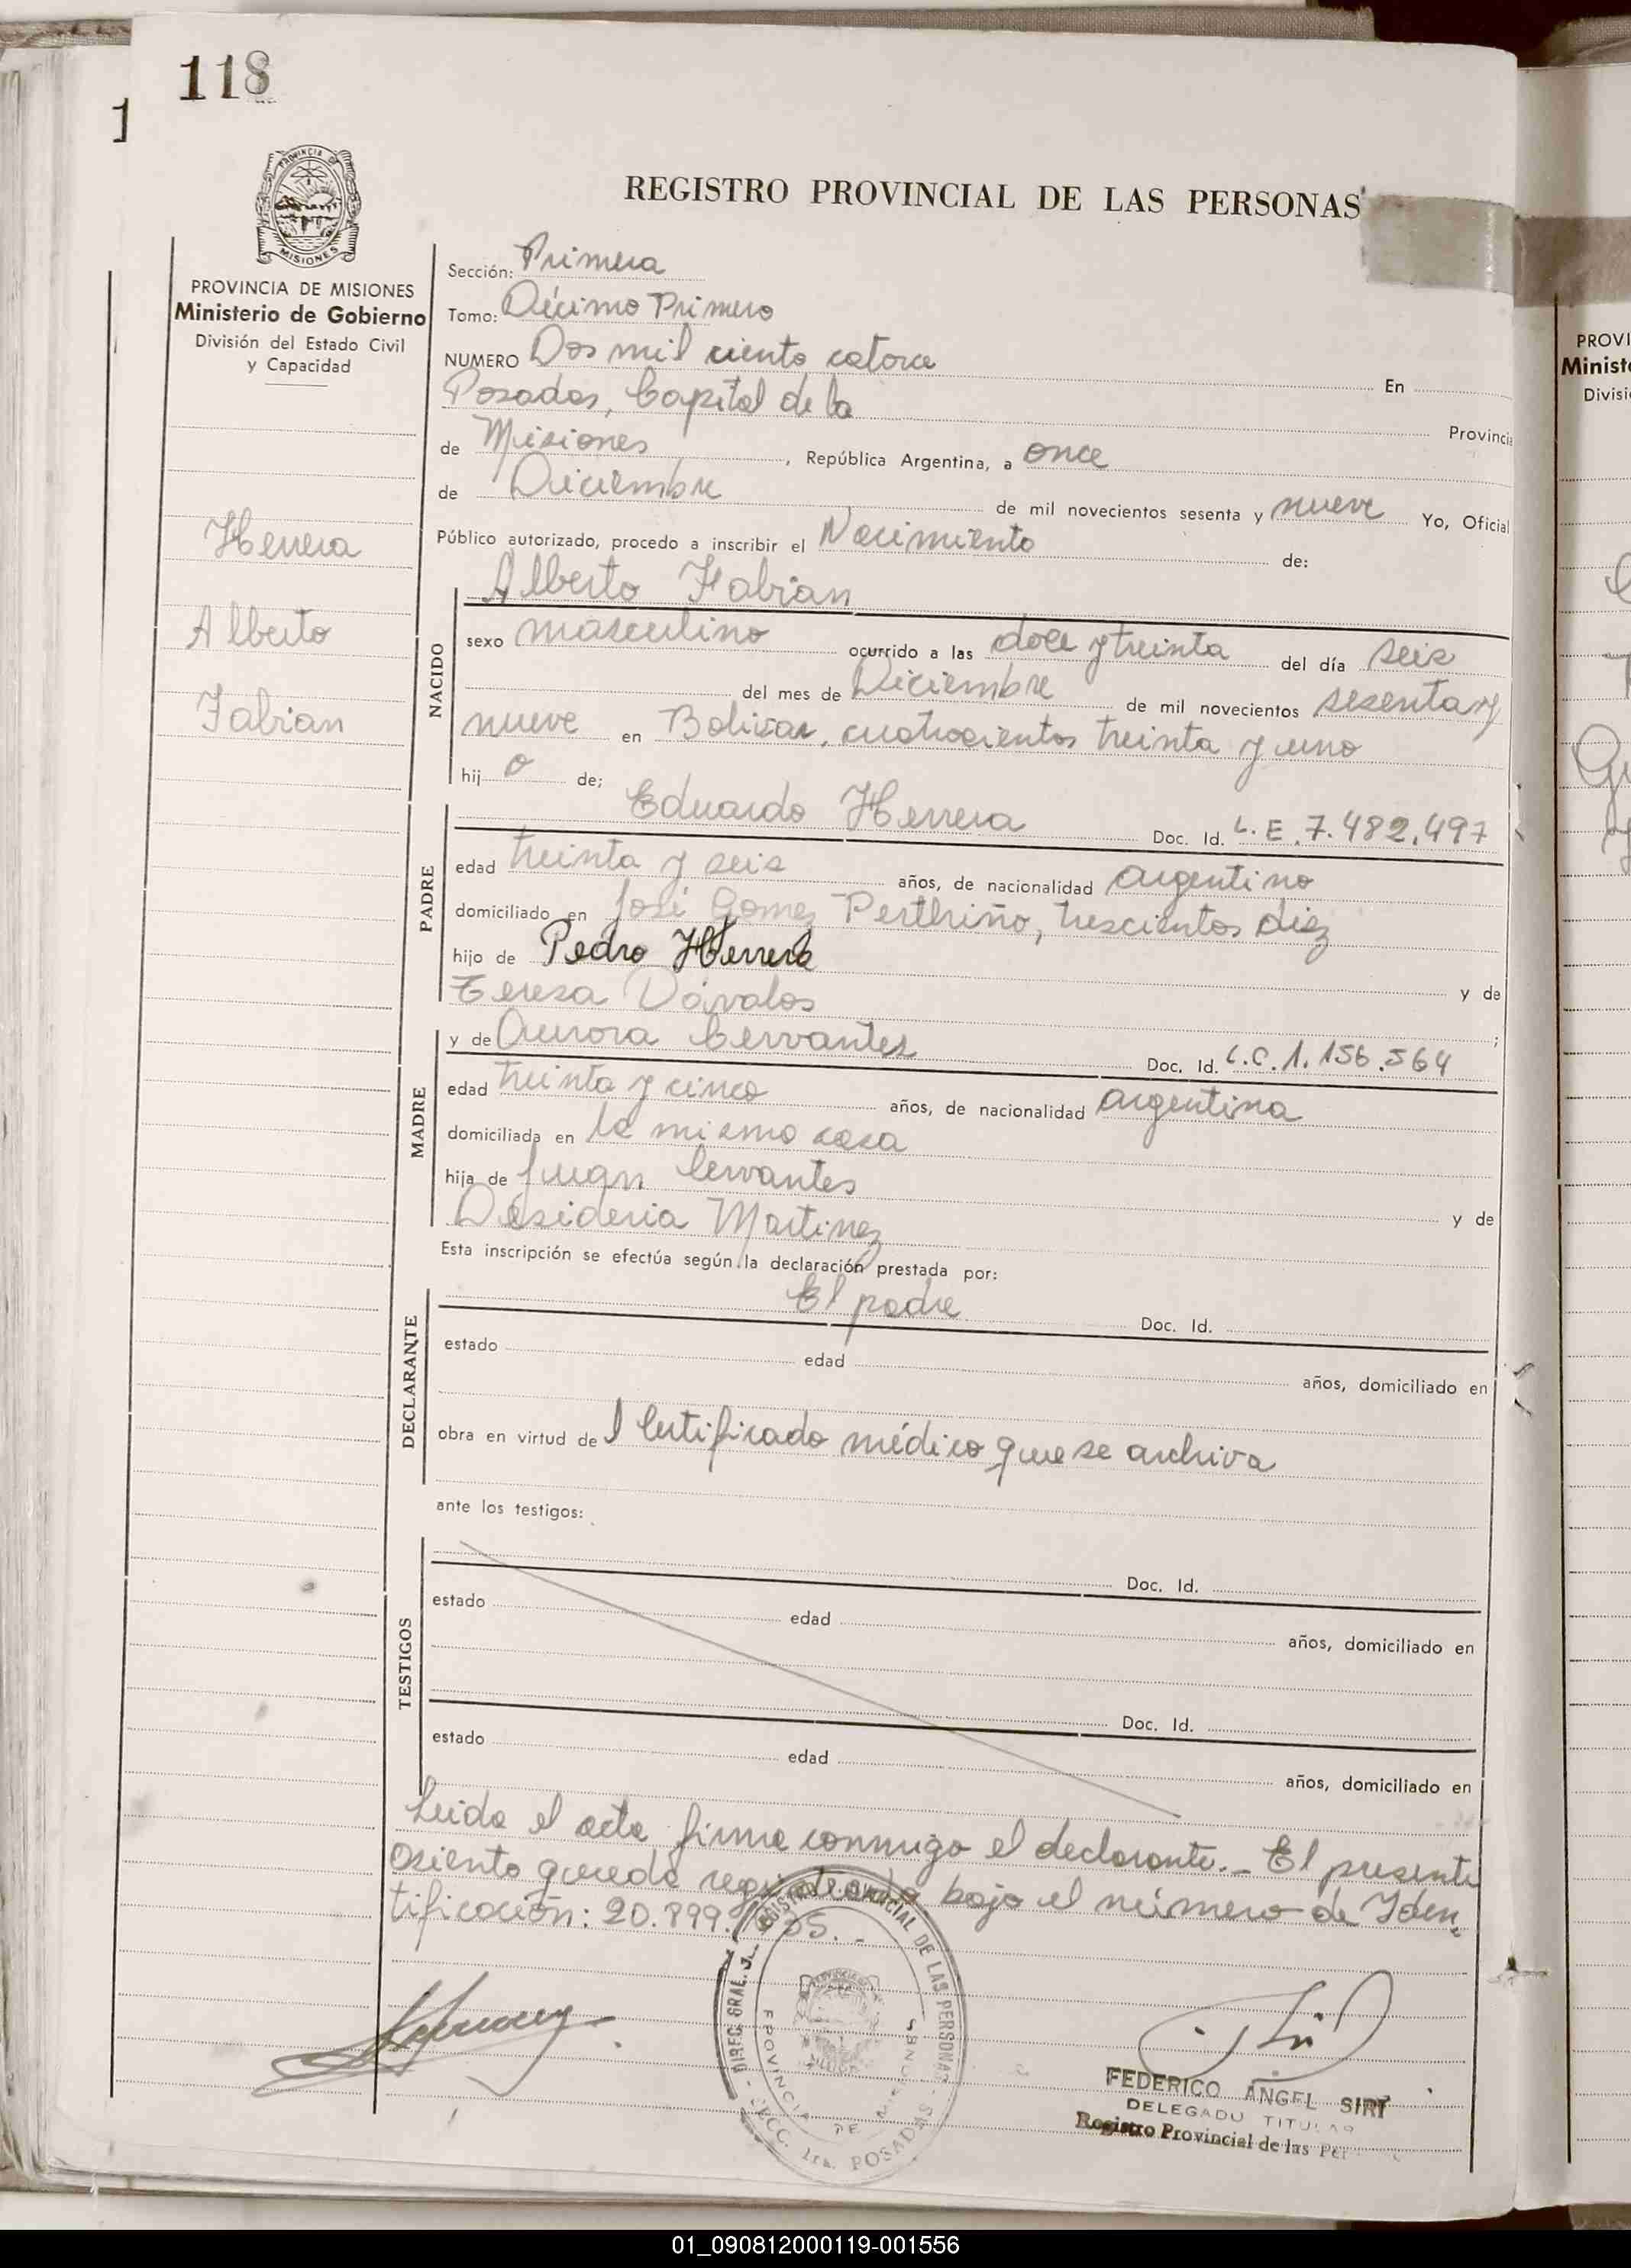 118
1
REGISTRO PROVINCIAL DE LAS PERSONAS
PROVINCIA DE MISIONES
Ministerio de Gobierno
División del Estado Civil
y Capacidad
Herrera
Alberto
Fabian
Sección: Primera
Tomo: Décimo Primero
NUMERO Dos mil ciento catorce En
Posadas, Capital de la Provincia
de Misiones, República Argentina, a once
de Diciembre de mil novecientos sesenta y nueve Yo, Oficial
Público autorizado, procedo a inscribir el Nacimiento de:
NACIDO
Alberto Fabian
sexo masculino ocurrido a las doce y treinta del día seis
del mes de Diciembre de mil novecientos sesenta y
nueve en Bolivar, cuatrocientos treinta y uno
hijo de;
PADRE
Eduardo Herrera Doc. Id. L.E. 7.482.497
edad treinta y seis años, de nacionalidad argentino
domiciliado en José Gomez Perthiño, trescientos diez
hijo de Pedro Herrera y de
Tereza Dávalos ;
MADRE
y de Aurora Cervantes Doc. Id. L.C. 1.156.564
edad treinta y cinco años, de nacionalidad argentina
domiciliada en la misma casa
hija de Juan Cervantes y de
Desideria Martinez
Esta inscripción se efectúa según la declaración prestada por:
DECLARANTE
El padre Doc. Id.
estado edad años, domiciliado en
obra en virtud del Certificado médico que se archiva
ante los testigos:
TESTIGOS
Doc. Id.
estado edad años, domiciliado en
Doc. Id.
estado edad años, domiciliado en
Leida el acta firma conmigo el declarante._ El presente
asiento queda registrado bajo el número de Iden
tificación: 20.899.
REGISTRO PROVINCIAL DE LAS PERSONAS
PROVINCIA DE MISIONES
SECC. 1ra. POSADAS
FEDERICO ANGEL SIRI
DELEGADO TITULAR
Registro Provincial de las Per
PROVI
Ministe
Divisi
01_090812000119-001556